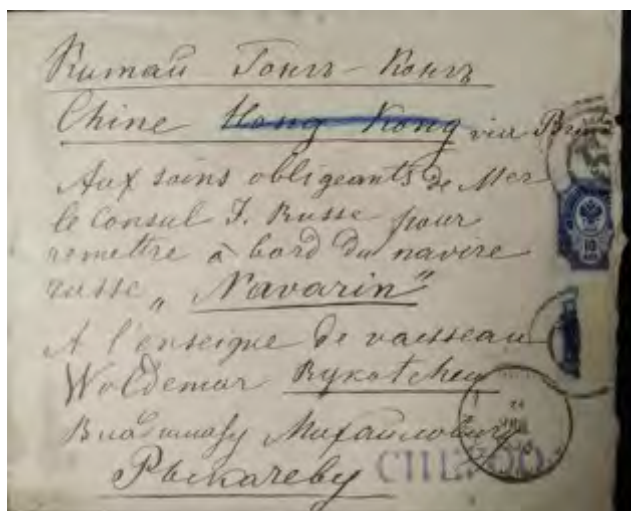 Китай Гонгъ-Конгъ
Chine Hong Kong via
Aux soins obligeants de Mer
le Consul I. Russe pour
remettre à bord du navire
russe „Navarin“
A l'enseigne de vaisseau
Woldemar Rykatchew
Владиміру Михайловичу
Рыкачеву
10